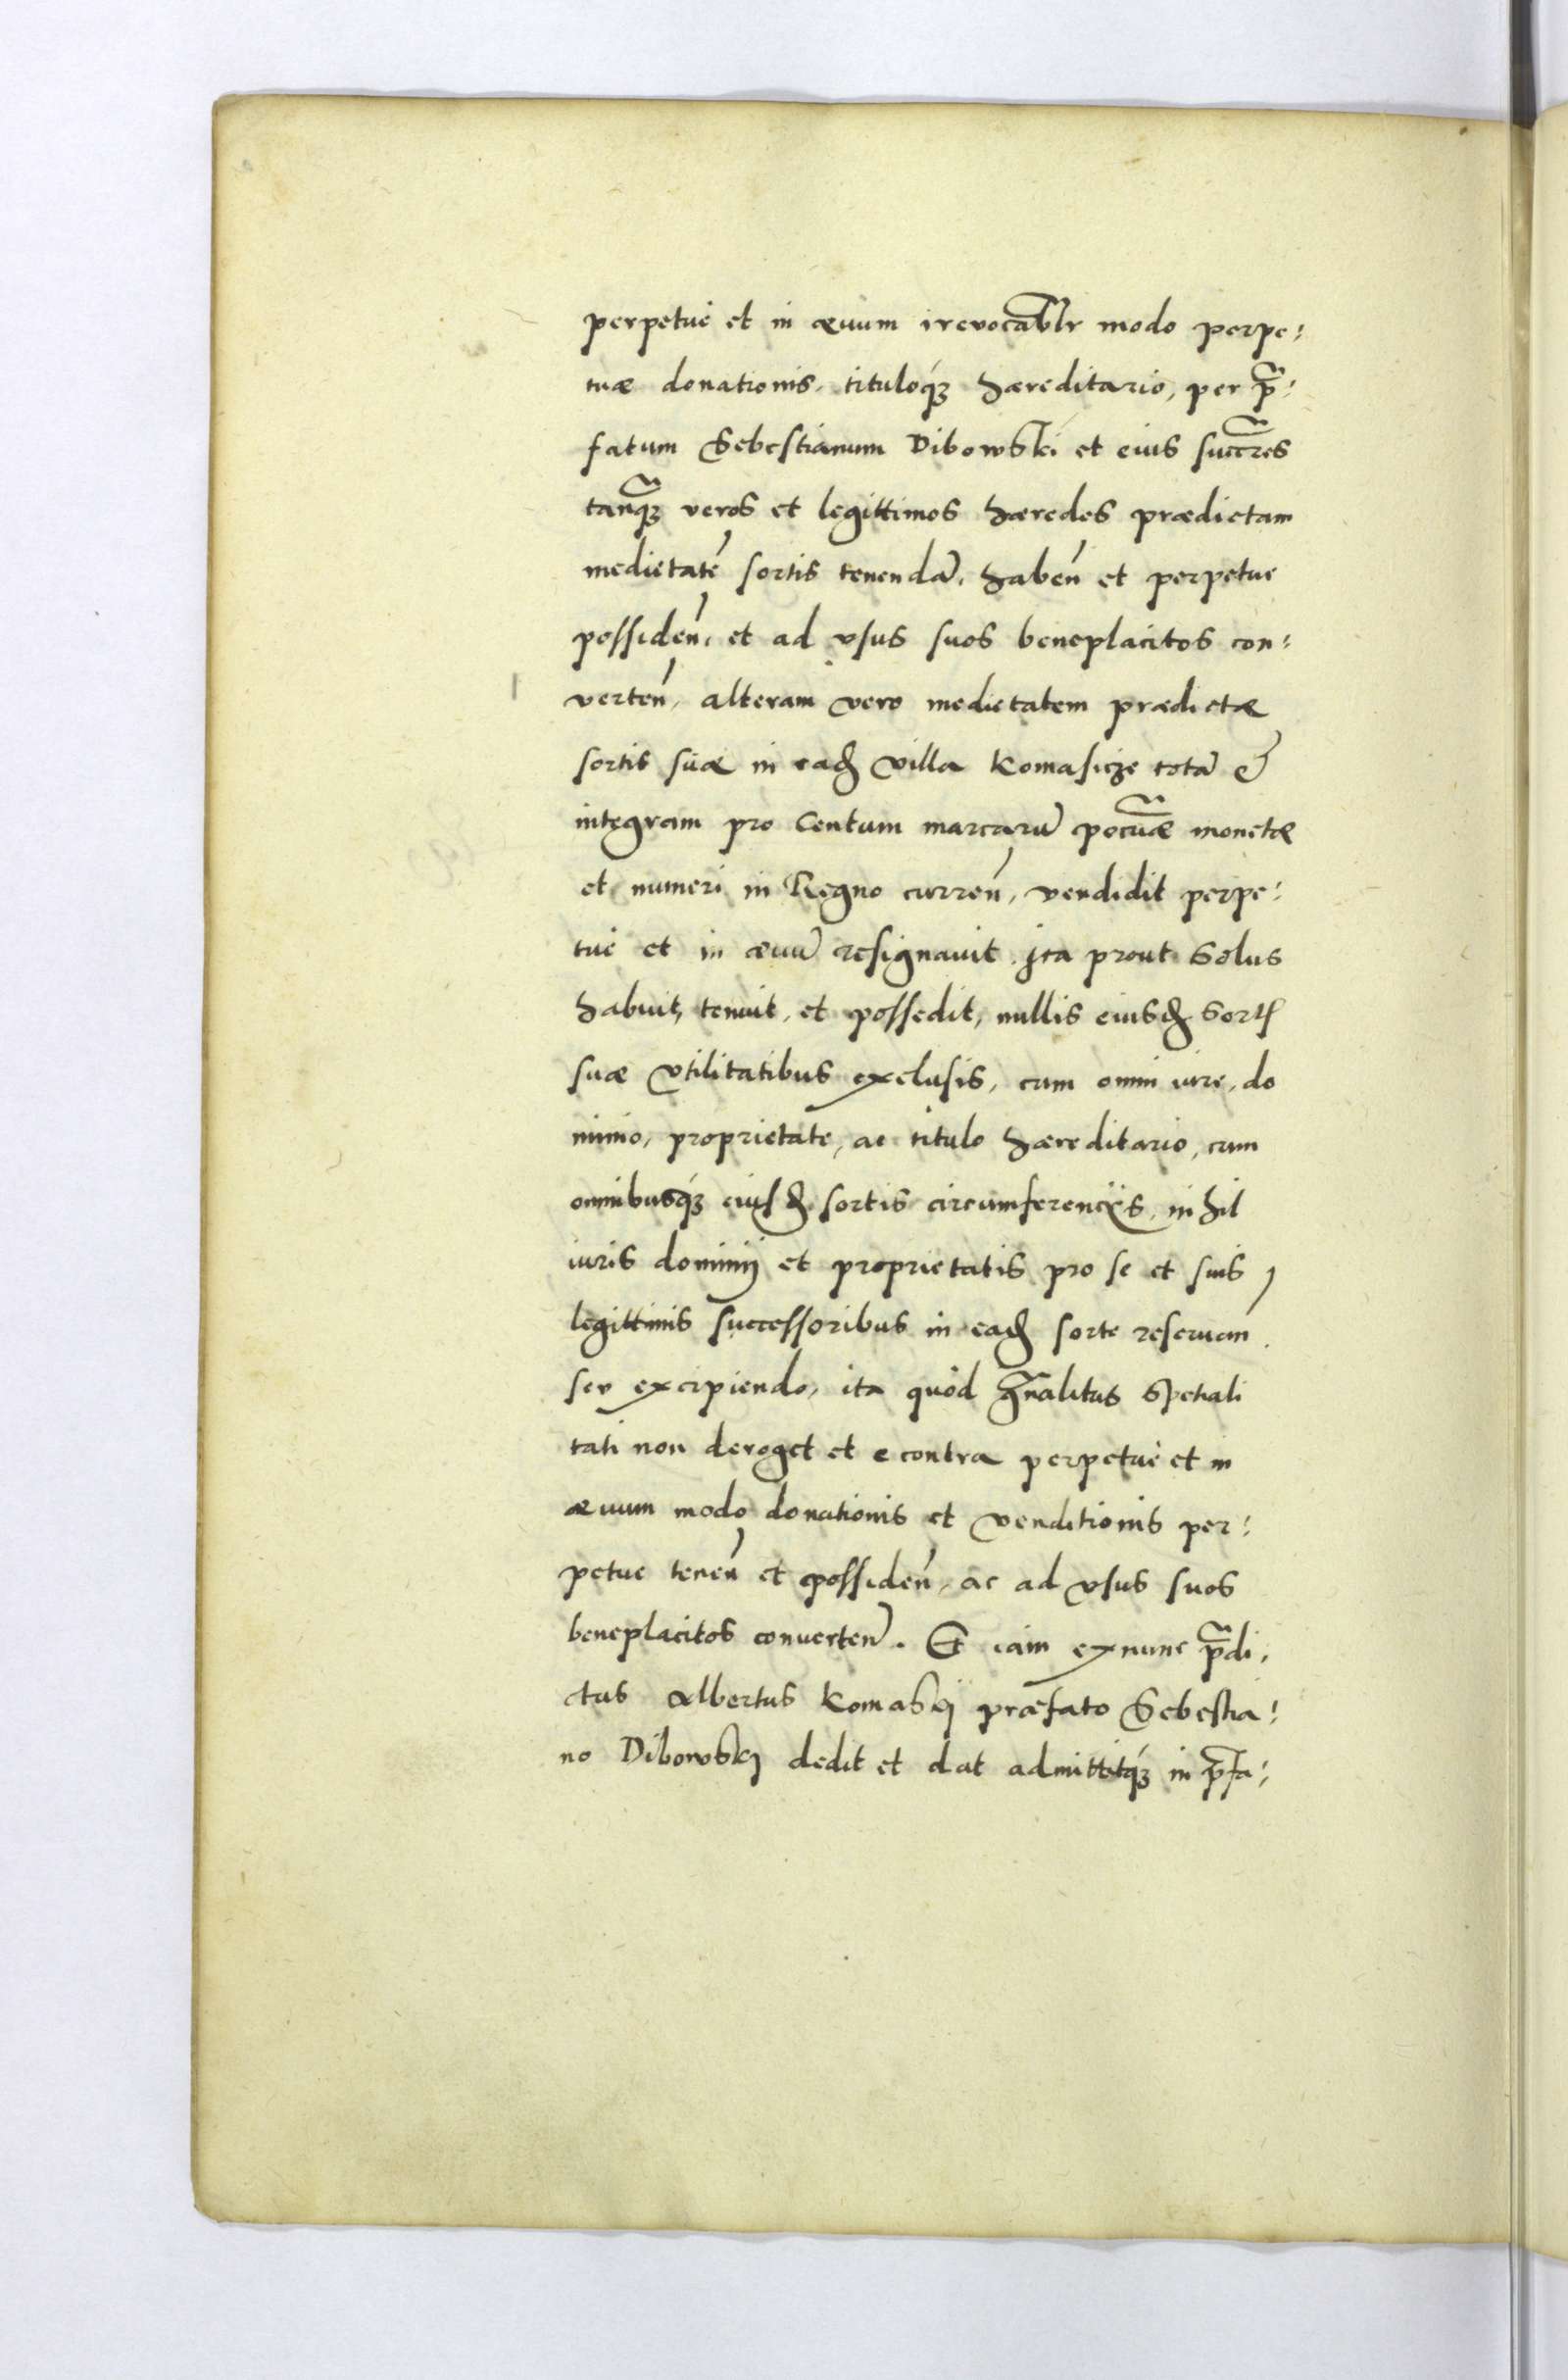 perpetuè et in æuum irevocablr modo perpe:
tuæ donationis, tituloq́ꝫ hæreditario, per p̃:
fatum Sebestianum Dibowski et eius succr̃es
tanq̃ꝫ veros et legittimos hæredes prædictam
medietatē sortis tenendā, habeñ et perpetue
possideñ, et ad vsus suos beneplacitos con:
verteñ, alteram vero medietatem prædictæ
sortis suæ in eadꝫ villa Komasicze totā &
integram pro Centum marcarū pecuñæ monetæ
et numeri in Regno curreñ, vendidit perpe:
tuè et in æuū resignauit. Jta prout Solus
habuit, tenuit, et possedit, nullis eiusdꝫ Sortꝭ
suæ vtilitatibus exclusis, cum omni iure, do
minio, proprietate, ac titulo hæreditario, cum
omnibusq́ꝫ eiusdꝫ sortis circumferencijs, nihil
iuris dominij et proprietatis pro se et suis
legittimis successoribus in eadꝫ sorte reseruañ
seu excipiendo, ita quòd gñalitas Spetiali
tati non deroget et e contra perpetuè et in
æuum modo donationis et venditionis per:
petue teneñ et possideñ, ac ad vsus suos
beneplacitos conuerteñ. Et iam exnunc p̃di,
ctus Albertus Komaskij præfato Sebestia:
no Dibowskij dedit et dat admittitq́ꝫ in p̃fa: